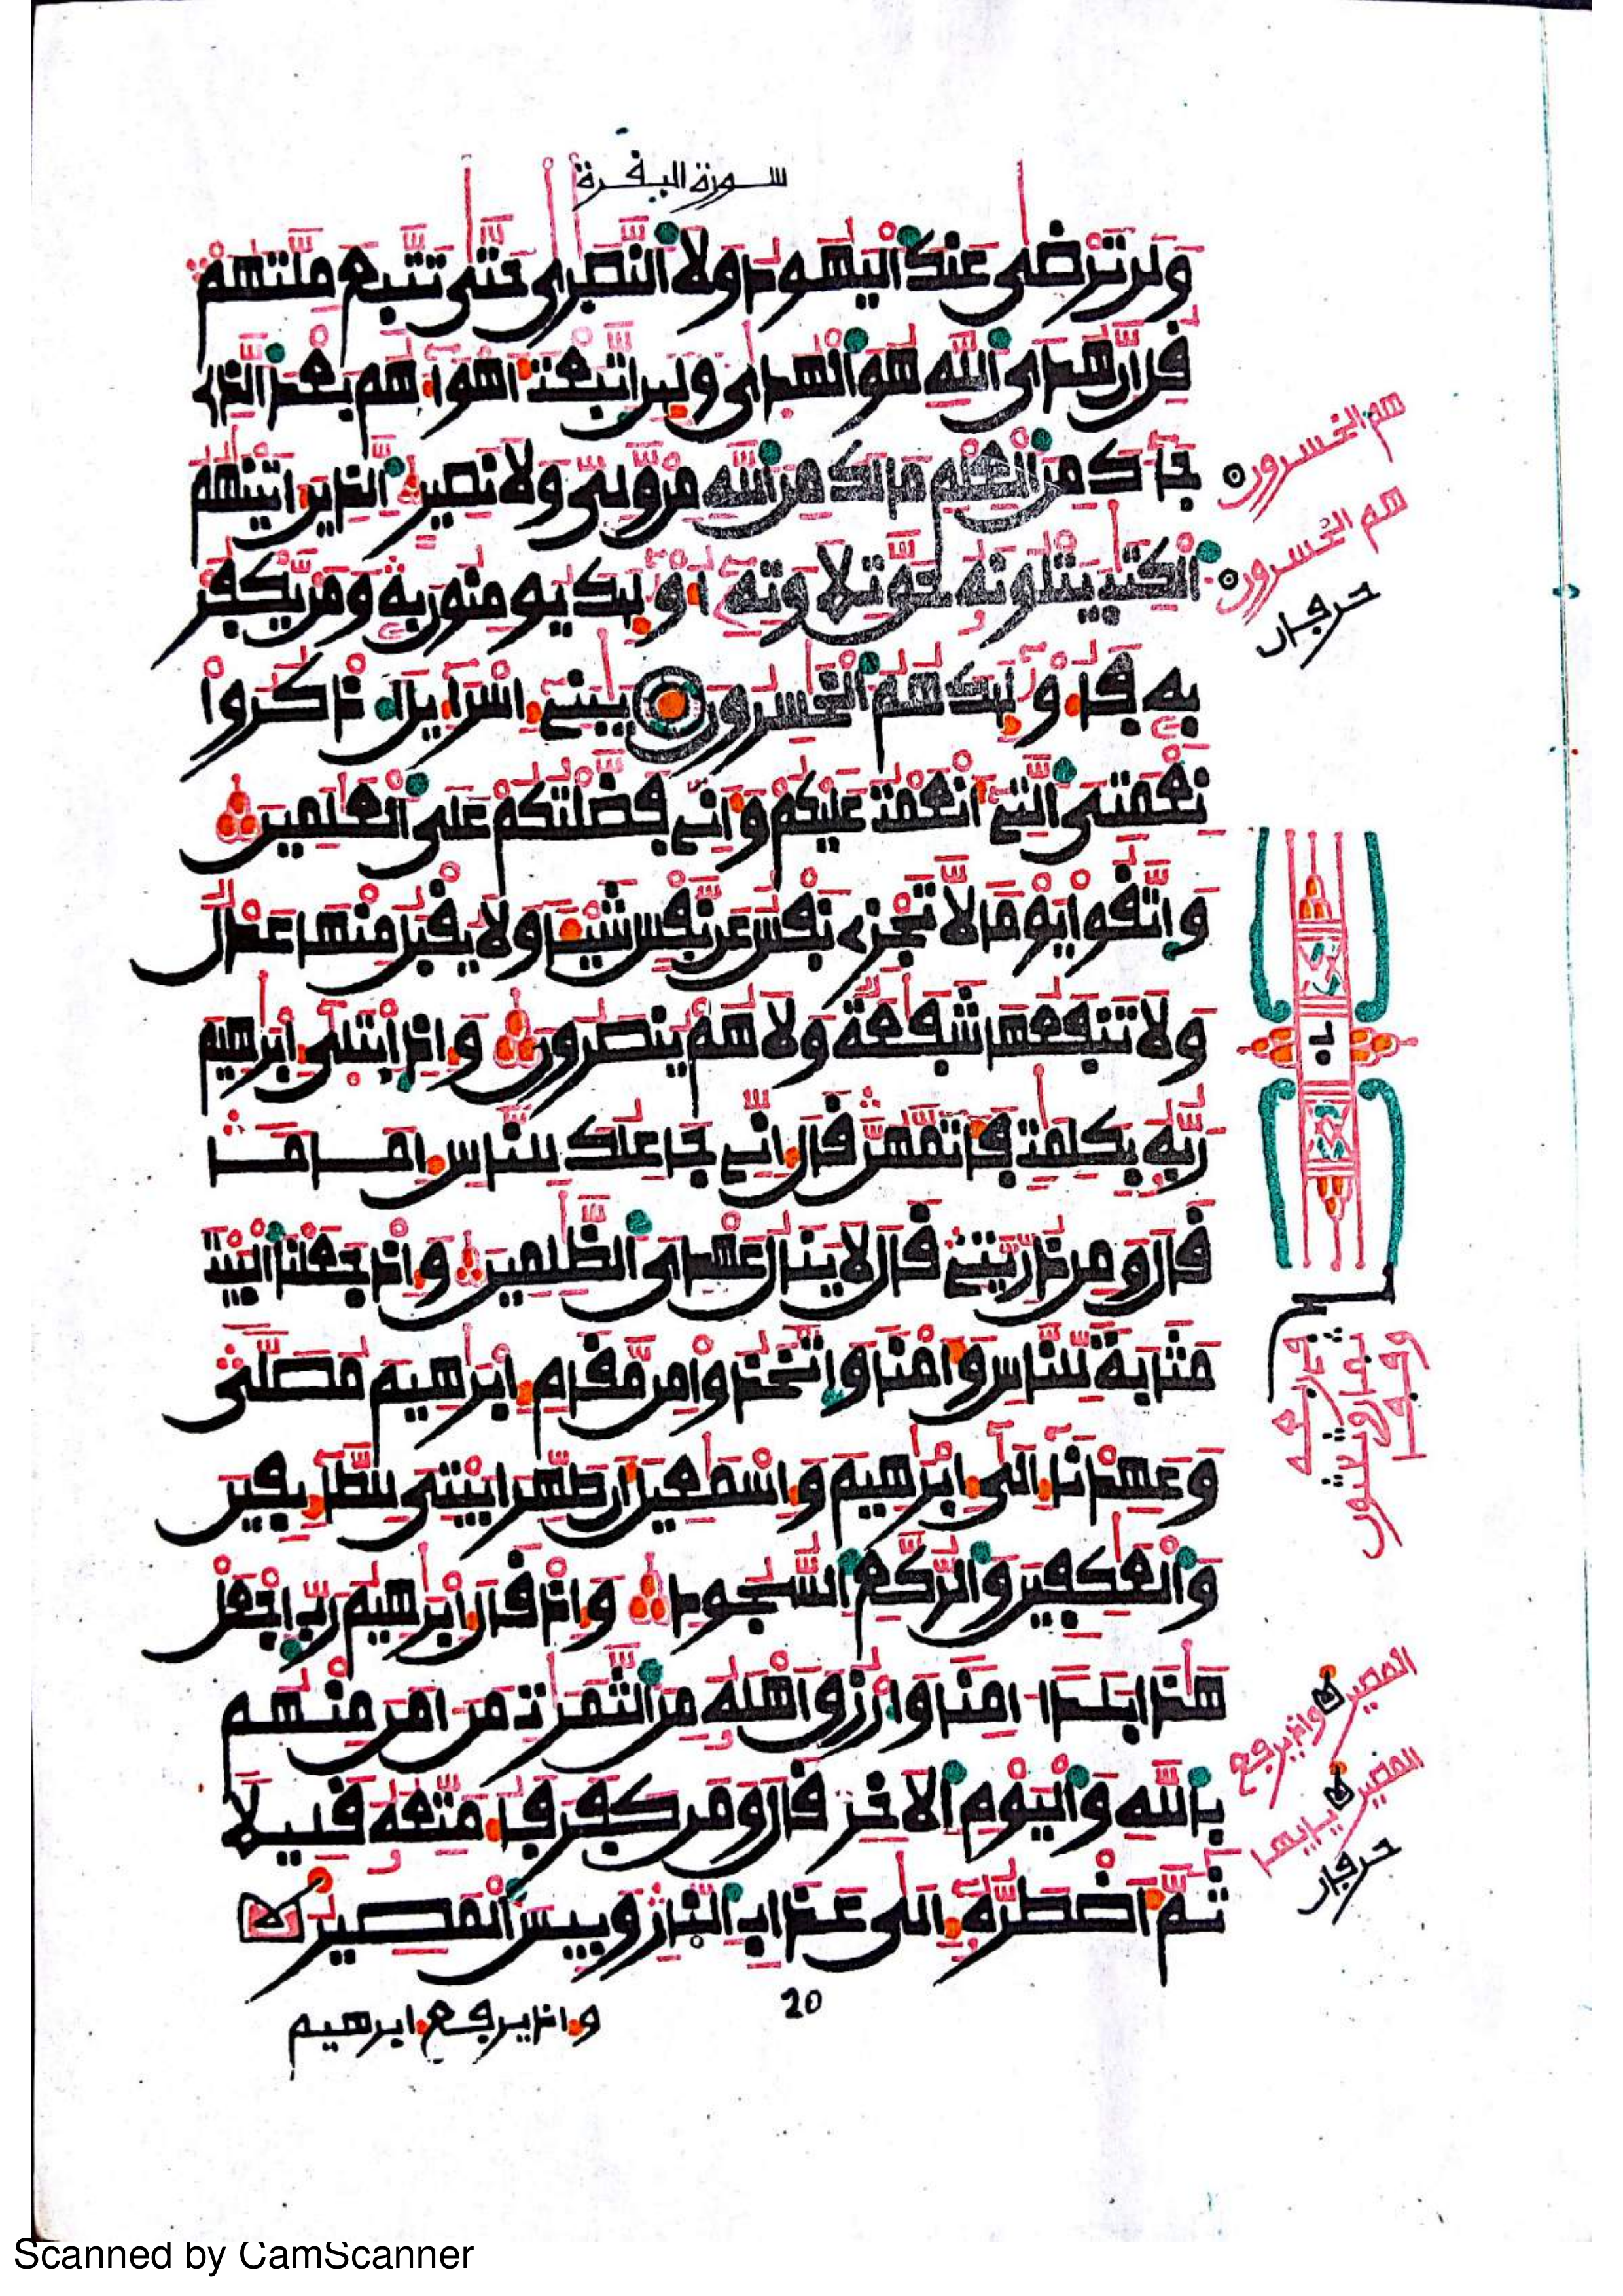 سورة البفرة
ولن ترضى عنك اليهود ولا النصرى حتى تتبع ملتهم
فل ان هدى الله هو الهدى ولين اتبعت اهواءهم بعد الذى
جاءك من العلم مالك من الله من ولى ولا نصير الذين اتينهم
الكتب يتلونه حق تلاوته اوليك يومنون به ومن يكفر
به فاوليك هم الخسرون يبنى اسراءيل اذكروا
نعمتى التى انعمت عليكم وانى فضلتكم على العلمين
واتفوا يوما لا تجزى نفس عن نفس شيا ولا يفبل منها عدل
ولا تنفعها شفعة ولا هم ينصرون واذ ابتلى ابرهيم
ربه بكلمت فاتمهن فال انى جاعلك للناس اماما
فال ومن ذريتى فال لا ينال عهدى الظلمين واذ جعلنا البيت
مثابة للناس وامنا واتخذوا من مفام ابرهيم مصلى
وعهدنا الى ابرهيم واسمعيل ان طهرا بيتى للطايفين
والعكفين والركع السجود واذ فال ابرهيم رب اجعل
هذا بلدا امنا وارزق اهله من الثمرت من امن منهم
بالله واليوم الاخر فال ومن كفر فامتعه فليلا
ثم اضطره الى عذاب النار وبيس المصير
20
واذ يرفع ابرهيم
هم الخسرون
هم الخسرون
حرفان
المصير واذ يرفع
المصير يايها
حرفان
Scanned by CamScanner